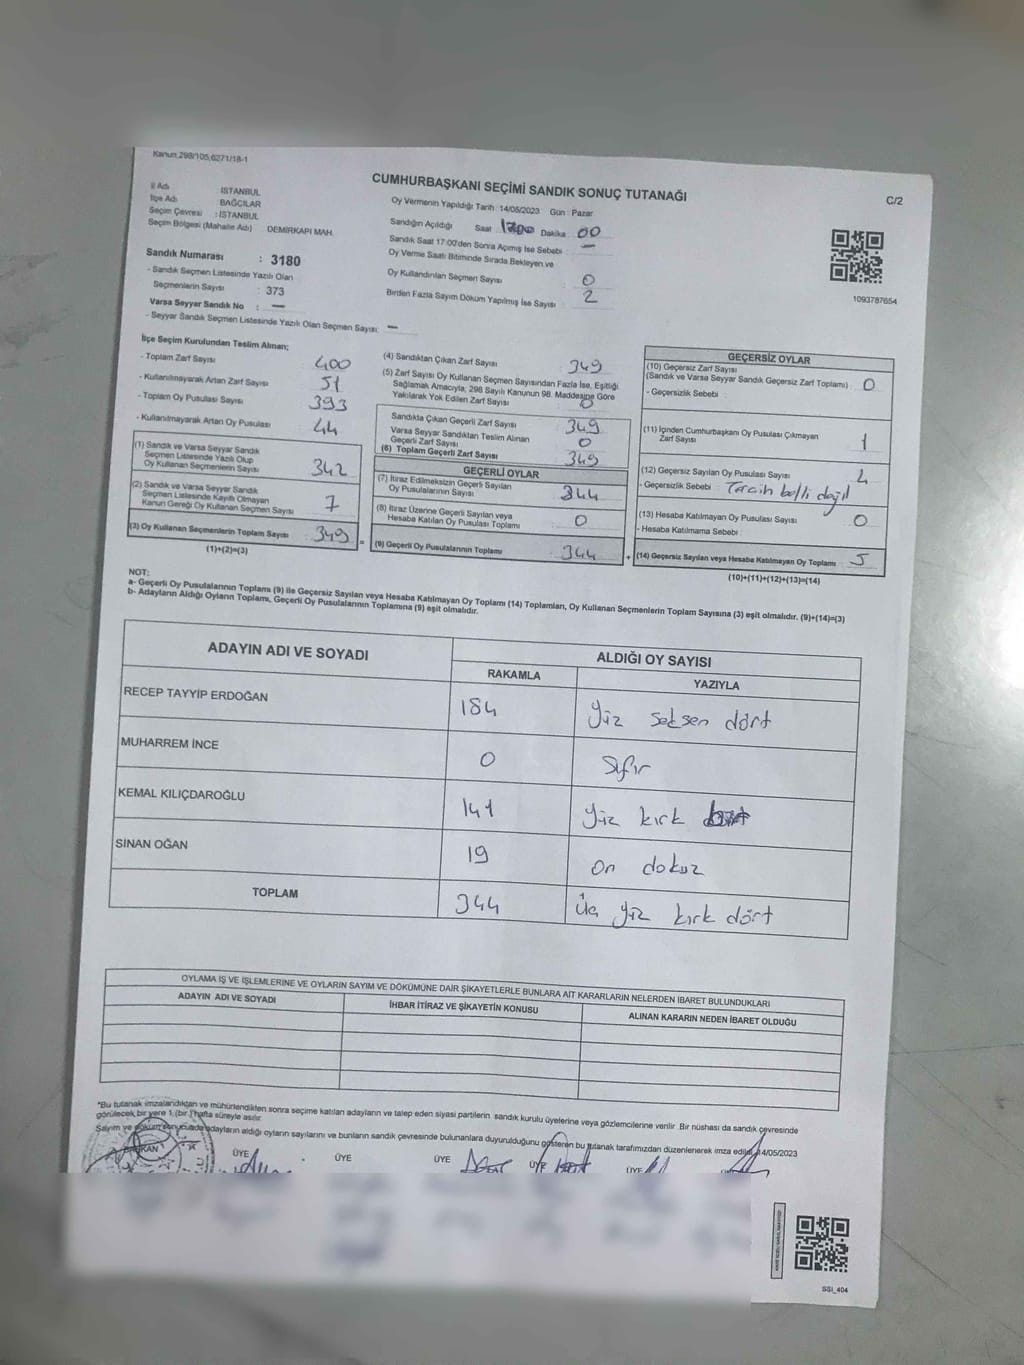 Kanun,298/105,6271/18-1
CUMHURBAŞKANI SEÇİMİ SANDIK SONUÇ TUTANAĞI
C/2
İl Adı İSTANBUL
İlçe Adı BAĞCILAR
Seçim Çevresi : İSTANBUL
Seçim Bölgesi (Mahalle Adı) DEMİRKAPI MAH.
Sandık Numarası : 3180
- Sandık Seçmen Listesinde Yazılı Olan
Seçmenlerin Sayısı : 373
Varsa Seyyar Sandık No : —
- Seyyar Sandık Seçmen Listesinde Yazılı Olan Seçmen Sayısı: —
Oy Vermenin Yapıldığı Tarih : 14/05/2023 Gün : Pazar
Sandığın Açıldığı Saat Dakika 00
Sandık Saat 17:00'den Sonra Açımış İse Sebebi : —
Oy Verme Saati Bitiminde Sırada Bekleyen ve
Oy Kullandırılan Seçmen Sayısı : 0
Birden Fazla Sayım Döküm Yapılmış İse Sayısı : 2
1093787654
İlçe Seçim Kurulundan Teslim Alınan;
- Toplam Zarf Sayısı : 400
- Kullanılmayarak Artan Zarf Sayısı : 51
- Toplam Oy Pusulası Sayısı : 393
- Kullanılmayarak Artan Oy Pusulası : 44
(1) Sandık ve Varsa Seyyar Sandık
Seçmen Listesinde Yazılı Olup
Oy Kullanan Seçmenlerin Sayısı : 342
(2) Sandık ve Varsa Seyyar Sandık
Seçmen Listesinde Kayıtlı Olmayan
Kanun Gereği Oy Kullanan Seçmen Sayısı : 7
(3) Oy Kullanan Seçmenlerin Toplam Sayısı : 349
(1)+(2)=(3)
=
(4) Sandıktan Çıkan Zarf Sayısı : 349
(5) Zarf Sayısı Oy Kullanan Seçmen Sayısından Fazla İse, Eşitliği
Sağlamak Amacıyla, 298 Sayılı Kanunun 98. Maddesine Göre
Yakılarak Yok Edilen Zarf Sayısı : 0
Sandıkta Çıkan Geçerli Zarf : 349
Varsa Seyyar Sandıktan Teslim Alınan
Geçerli Zarf Sayısı : 0
(6) Toplam Geçerli Zarf Sayısı : 349
GEÇERLİ OYLAR
(7) İtiraz Edilmeksizin Geçerli Sayılan
Oy Pusulalarının Sayısı : 344
(8) İtiraz Üzerine Geçerli Sayılan veya
Hesaba Katılan Oy Pusulası Toplamı : 0
(9) Geçerli Oy Pusulalarının Toplamı : 344
+
GEÇERSİZ OYLAR
(10) Geçersiz Zarf Sayısı
(Sandık ve Varsa Seyyar Sandık Geçersiz Zarf Toplamı) : 0
- Geçersizlik Sebebi :
(11) İçinden Cumhurbaşkanı Oy Pusulası Çıkmayan
Zarf Sayısı : 1
(12) Geçersiz Sayılan Oy Pusulası Sayısı : 4
- Geçersizlik Sebebi : Tercih belli değil
(13) Hesaba Katılmayan Oy Pusulası Sayısı : 0
- Hesaba Katılmama Sebebi :
(14) Geçersiz Sayılan veya Hesaba Katılmayan Oy Toplamı : 5
(10)+(11)+(12)+(13)=(14)
NOT:
a- Geçerli Oy Pusulalarının Toplamı (9) ile Geçersiz Sayılan veya Hesaba Katılmayan Oy Toplamı (14) Toplamları, Oy Kullanan Seçmenlerin Toplam Sayısına (3) eşit olmalıdır. (9)+(14)=(3)
b- Adayların Aldığı Oyların Toplamı, Geçerli Oy Pusulalarının Toplamına (9) eşit olmalıdır.
ADAYIN ADI VE SOYADI
ALDIĞI OY SAYISI
RAKAMLA YAZIYLA
RECEP TAYYİP ERDOĞAN 184 Yüz seksen dört
MUHARREM İNCE 0 Sıfır
KEMAL KILIÇDAROĞLU 141 Yüz kırk
SİNAN OĞAN 19 On dokuz
TOPLAM 344 Üç yüz kırk dört
OYLAMA İŞ VE İŞLEMLERİNE VE OYLARIN SAYIM VE DÖKÜMÜNE DAİR ŞİKAYETLERLE BUNLARA AİT KARARLARIN NELERDEN İBARET BULUNDUKLARI
ADAYIN ADI VE SOYADI İHBAR İTİRAZ VE ŞİKAYETİN KONUSU ALINAN KARARIN NEDEN İBARET OLDUĞU
*Bu tutanak imzalandıktan ve mühürlendikten sonra seçime katılan adayların ve talep eden siyasi partilerin sandık kurulu üyelerine veya gözlemcilerine verilir. Bir nüshası da sandık çevresinde
görülecek bir yere 1 (bir) hafta süreyle asılır.
Sayım ve döküm sonucunda adayların aldığı oyların sayılarını ve bunların sandık çevresinde bulunanlara duyurulduğunu gösteren bu tutanak tarafımızdan düzenlenerek imza edildi. 14/05/2023
BAŞKAN ÜYE ÜYE ÜYE ÜYE ÜYE
SSI_404